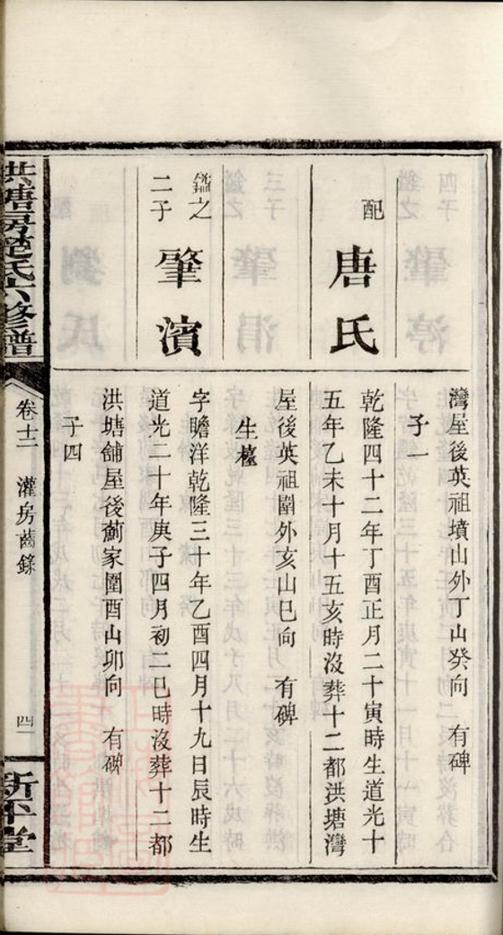 灣屋後英祖墳山外丁山癸向　有碑
子一
配
唐氏
乾隆四十二年丁酉正月二十寅時生道光十
五年乙未十月十五亥時沒葬十二都洪塘灣
屋後英祖圍外亥山巳向　有碑
生
鎰之
二子
肇濱
字瞻洋乾隆三十年乙酉四月十九日辰時生
道光二十年庚子四月初二巳時沒葬十二都
洪塘舖屋後薊家圍酉山卯向　有碑
子四
洪塘房范氏六修譜
卷十二
灌房齒錄
四
新平堂